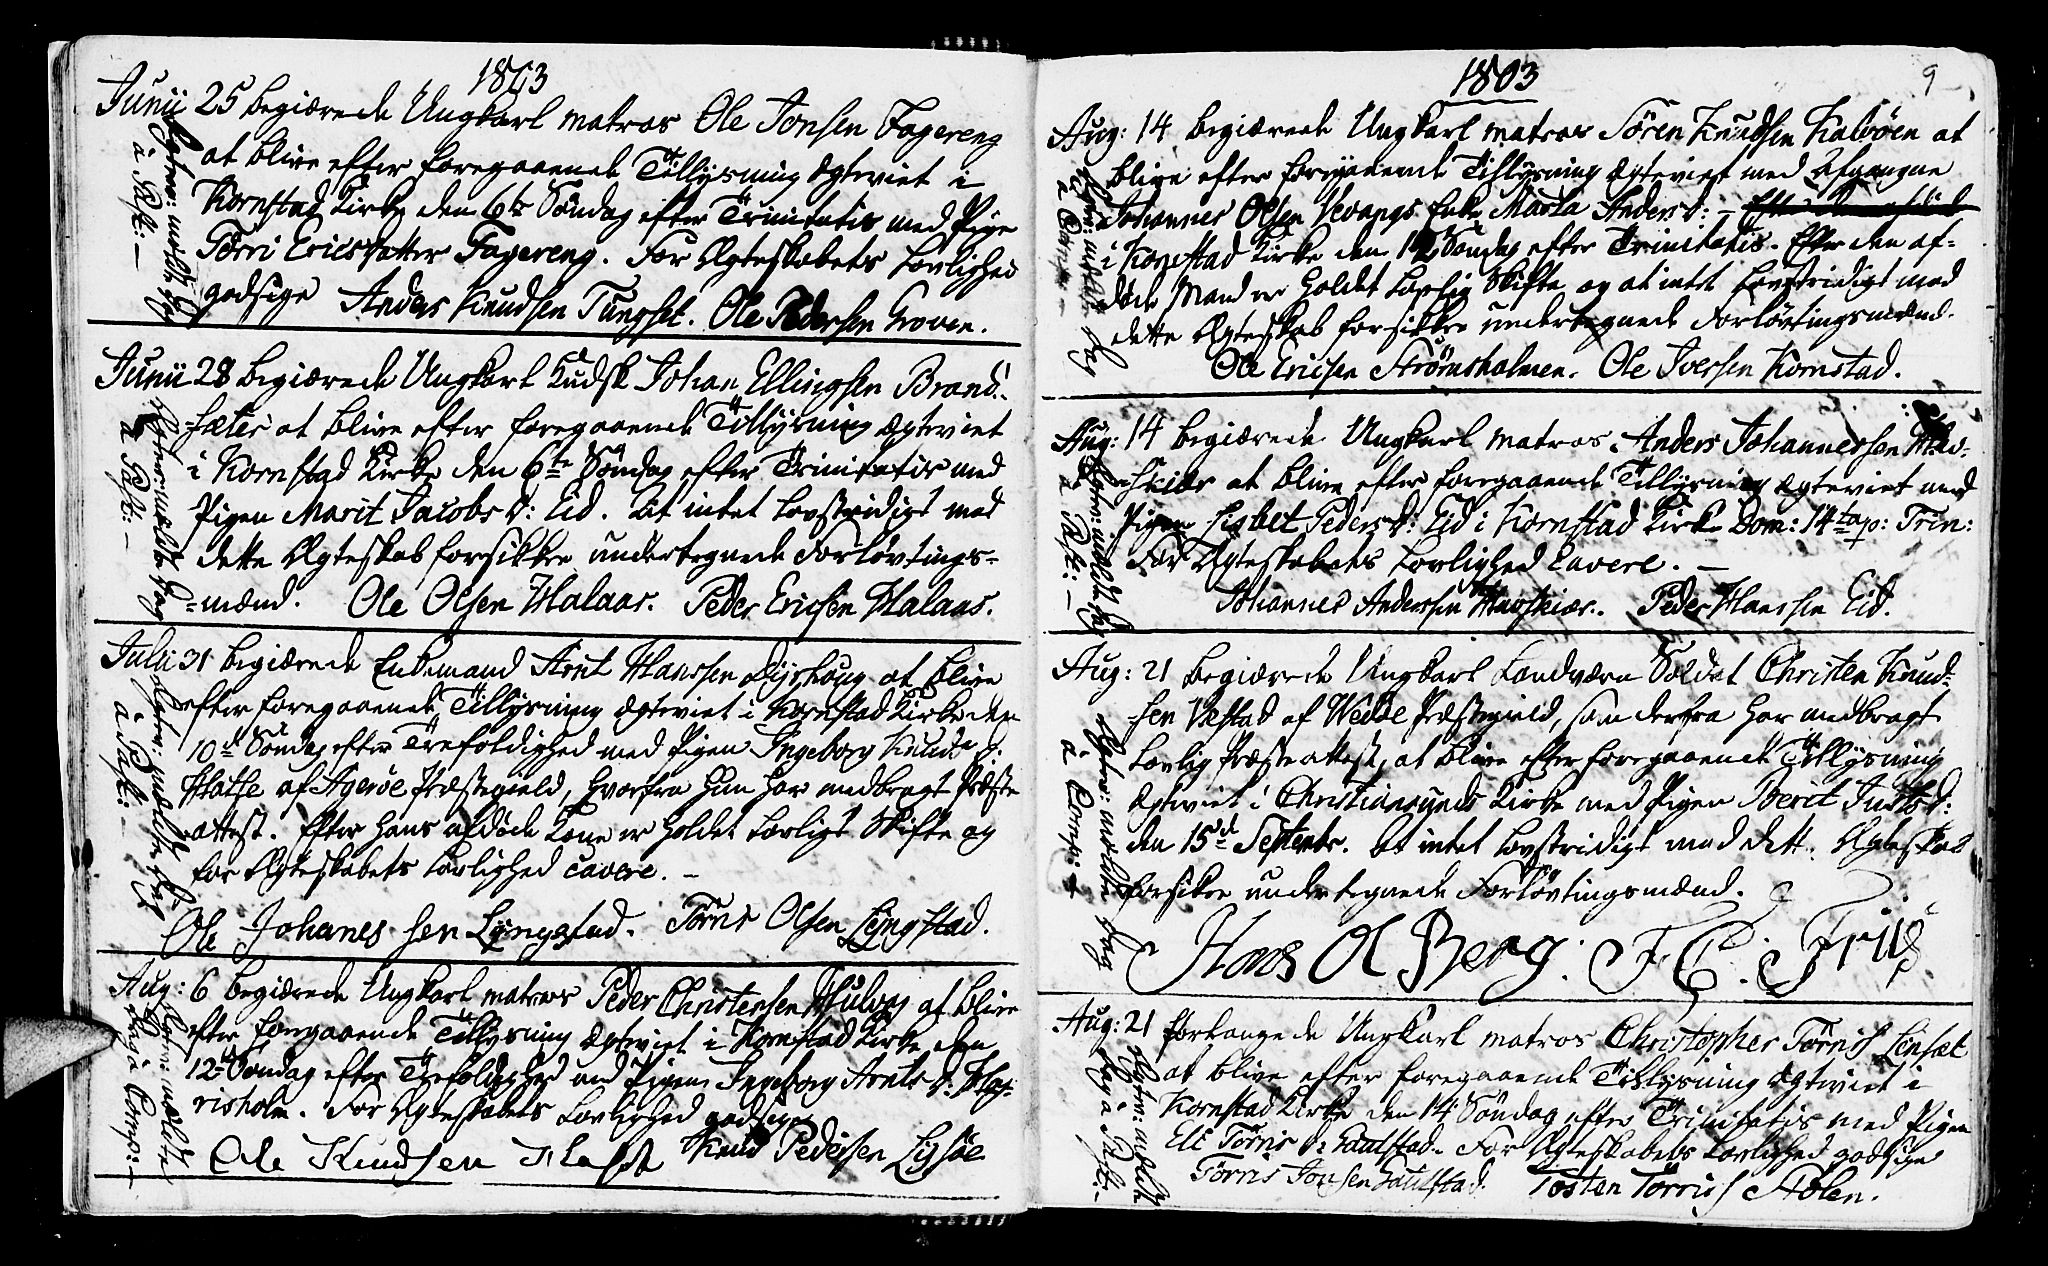 1803
Junii 25 begiærede Ungkarl matros Ole Jonsen Fagereng
at blive efter foregaaende Tillysning ægteviet i
Kornstad Kirke den 6te Søndag efter Trinitatis med Pige
Tørri Ericsdatter Fagereng. For Ægteskabets Lovlighed
godsige Anders Knudsen Tungset. Ole Pedersen Groven.
Junii 28 begiærede Ungkarl Kudsk Johan Ellingsen Brand-
-sæter at blive efter foregaaende Tillysning ægteviet
i Kornstad Kirke den 6te Søndag efter Trinitatis med
Pigen Marit Jacobs d: Eid. At intet Lovstridigt med
dette Ægteskab forsikkre undertegnede Forlovtings-
-mænd. Ole Olsen Halaas. Peder Ericsen Halaas.
Julii 31 begiærede Enkemand Arnt Hanssen Dyrhoug at blive
efter foregaaende Tillysning ægteviet i Kornstad Kirke den
10de Søndag efter Trefoldighed med Pigen Ingeborg Knuds d:
af Agerøe Præstegield, hvorfra hun har medbragt Præste
attest. Efter hans afdøde Kone er holdet Lovligt Skifte og
for Ægteskabets Lovlighed cavere. –
Ole Johanes sen Lyngstad. Tørris Olsen Lyngstad.
Aug: 6 begiærede Ungkarl matros Peder Christensen Hulvog at blive
efter foregaaende Tillysning ægteviet i Kornstad Kirke den
12te Søndag efter Trefoldighed med Pigen Ingeborg Arnts d:
risholm. For Ægteskabets Lovlighed godsige
Ole Knudsen Knud Pedersen Lysøe
1803
9
Aug: 14 begiærede Ungkarl matros Søren Knudsen Kalvøen at
blive efter foregaaende Tillysning ægteviet med Afgangne
Johannes Olsen Vevangs Enke Marta Anders d: –
i Kornstad Kirke den 12 Søndag efter Trinitatis. Efter den af-
døde Mand er holdet Lovlig Skifte og at intet Lovstridigt med
dette Ægteskab forsikkre undertegnede Forlovtingsmænd.
Ole Ericsen Strømsholmen. Ole Iversen Kornstad.
Aug: 14 begiærede Ungkarl matros Anders Johannessen Hav-
-skiær at blive efter foregaaende Tillysning ægteviet med
Pigen Lisbet Peders d: Eid i Kornstad Kirke Dom: 14ta p: Trin:
For Ægteskabets Lovlighed cavere. –
Johannes Anderssen Havskiær. Peder Hanssen Eid.
Aug: 21 begiærede Ungkarl Landværn Soldat Christen Knud-
-sen Vestad af Wedde Præstegield, som derfra har medbragt
Lovlig Præsteattest, at blive efter foregaaende Tillysning
ægteviet i Christiansunds Kirke med Pigen Berit d:
den 15de Septembr. At intet Lovstridigt med dette Ægteskab
forsikre undertegnede Forlovtingsmænd.
Hans Ol Berg. F. C. Friis
Aug: 21 forlangede Ungkarl matros Christopher Tørris Linsæt
at blive efter foregaaende Tillysning ægteviet i
Kornstad Kirke den 14 Søndag efter Trinitatis med Pigen
Eli Tørris d: Gaulstad. For Ægteskabets Lovlighed godsige
Tørris Jonsen Gaulstad. Tosten Tørris Stolen.